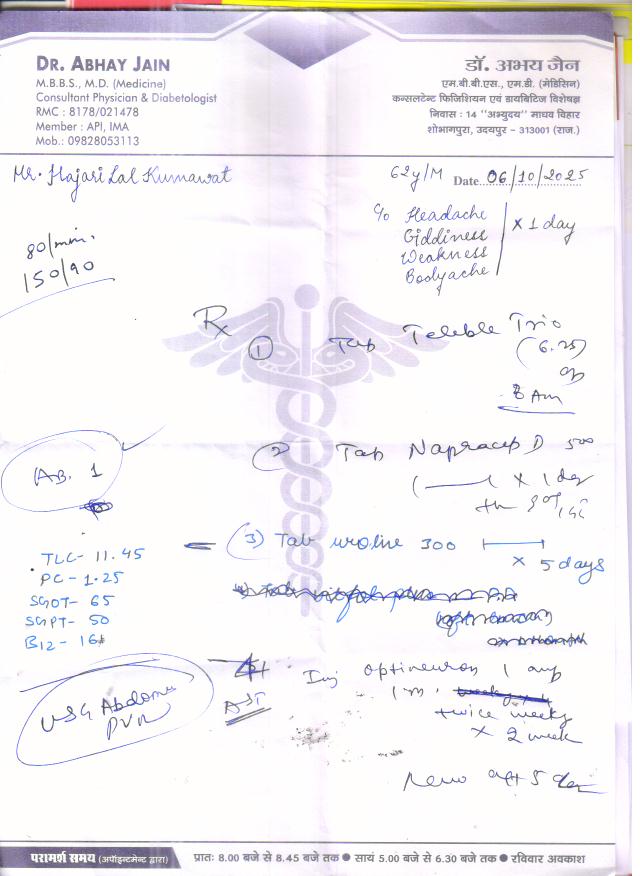 DR. ABHAY JAIN
M.B.B.S., M.D. (Medicine)
Consultant Physician & Diabetologist
RMC : 8178/021478
Member : API, IMA
Mob.: 09828053113
डॉ. अभय जैन
एम.बी.बी.एस., एम.डी. (मेडिसिन)
कन्सलटेन्ट फिजिशियन एवं डायबिटिज विशेषज्ञ
निवास : 14 "अभ्युदय" माधव विहार
शोभागपुरा, उदयपुर - 313001 (राज.)
Mr. Hajari Lal Kumawat
62y/M Date 06/10/2025
C/o Headache
Giddiness
Weakness
Bodyache
x 1 day
80/min.
150/90
Rx
1 Tab Teleble Trio
(6.25)
8 Am
2 Tab Napracep D 500
x 1 day
AB. 1
3) Tab uroline 300
x 5 days
TLC- 11.45
PC- 1.25
SGOT- 65
SGPT- 50
B12- 16
Inj Optineuron 1 amp
1m.
twice weekly
x 2 week
AST
USG Abdomen
PVR
परामर्श समय (अपॉइन्टमेन्ट द्वारा) प्रातः 8.00 बजे से 8.45 बजे तक ● सायं 5.00 बजे से 6.30 बजे तक ● रविवार अवकाश